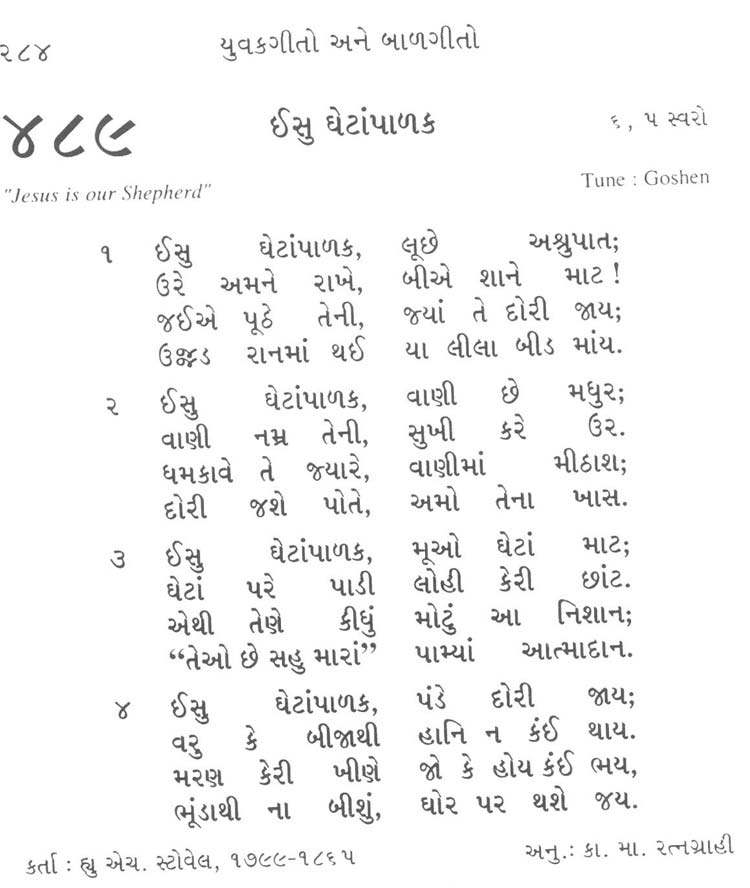 ૨૮૪ યુવકગીતો અને બાળગીતો
૪૮૯ ઈસુ ઘેટાંપાળક ૬, ૫ સ્વરો
"Jesus is our Shepherd" Tune : Goshen
૧ ઈસુ ઘેટાંપાળક, લૂછે અશ્રુપાત;
ઉરે અમને રાખે, બીએ શાને માટ !
જઈએ પૂઠે તેની, જ્યાં તે દોરી જાય;
ઉજ્જડ રાનમાં થઈ યા લીલા બીડ માંય.
૨ ઈસુ ઘેટાંપાળક, વાણી છે મધુર;
વાણી નમ્ર તેની, સુખી કરે ઉર.
ધમકાવે તે જ્યારે, વાણીમાં મીઠાશ;
દોરી જશે પોતે, અમો તેના ખાસ.
૩ ઈસુ ઘેટાંપાળક, મૂઓ ઘેટાં માટ;
ઘેટાં પરે પાડી લોહી કેરી છાંટ.
એથી તેણે કીધું મોટું આ નિશાન;
“તેઓ છે સહુ મારાં” પામ્યાં આત્માદાન.
૪ ઈસુ ઘેટાંપાળક, પંડે દોરી જાય;
વરુ કે બીજાથી હાનિ ન કંઈ થાય.
મરણ કેરી ખીણે જો કે હોય કંઈ ભય,
ભૂંડાથી ના બીશું, ઘોર પર થશે જય.
કર્તા : હ્યુ એચ. સ્ટોવેલ, ૧૭૯૯-૧૮૬૫ અનુ.: કા. મા. રત્નગ્રાહી